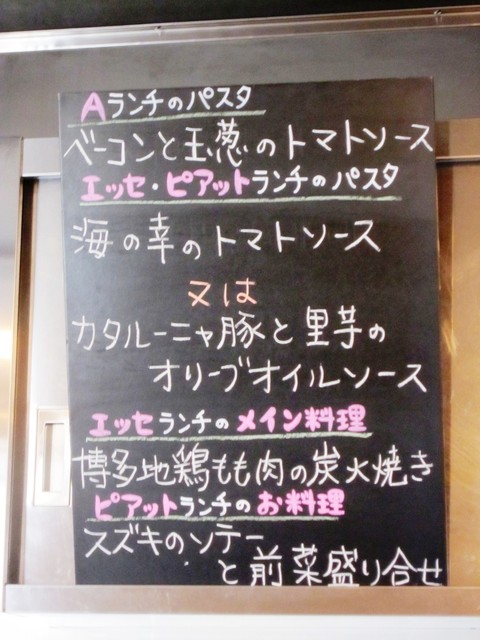 Aランチのパスタ
ベーコンと玉葱のトマトソース
エッセ・ピアットランチのパスタ
海の幸のトマトソース
又は
カタルーニャ豚と里芋の
オリーブオイルソース
エッセランチのメイン料理
博多地鶏もも肉の炭火焼き
ピアットランチのお料理
スズキのソテー
と前菜盛り合せ